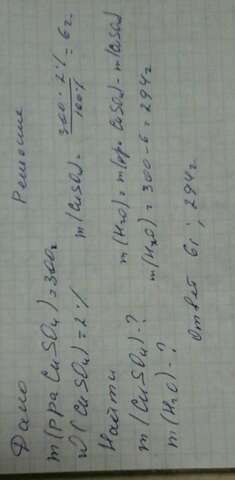 Дано
m(рра CuSO₄)=300г
ω(CuSO₄)=2%
Найти
m(CuSO₄)-?
m(H₂O)-?
Решение
m(CuSO₄)= 300·2%/100% =6г.
m(H₂O)=m(рра CuSO₄)-m(CuSO₄)
m(H₂O)=300-6=294г
Ответ 6г; 294г.